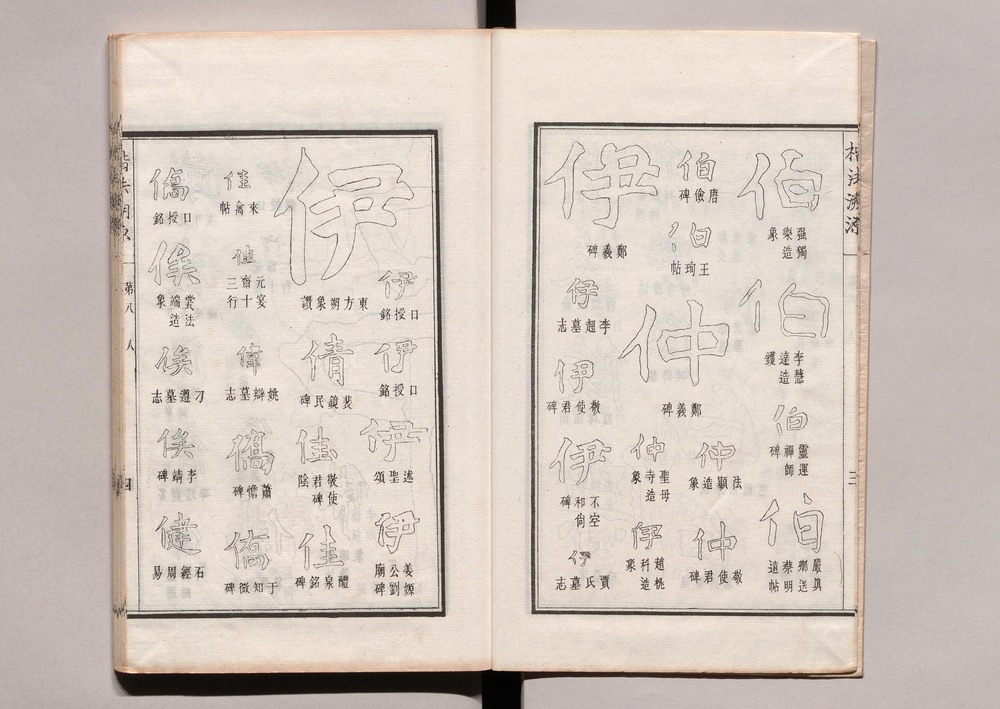 楷法溯源
伯
强獨
樂造
象
伯
李慧
達造
鑊
伯
靈運
禪師
碑
伯
嚴真
鄉送
蔡明
遠帖
伯
唐儉碑
伯
王珣帖
仲
鄭義碑
仲
法顯造象
仲
敬使君碑
仲
聖母
寺造
象
伊
趙桃
科造
象
伊
鄭義碑
伊
李超墓志
伊
敬使君碑
伊
不空
和尚
碑
伊
賈氏墓志
伊
東方朔象讚
伊
口授銘
伊
口授銘
伊
述聖頌
伊
姜嫄
公劉
廟碑
倩
裴鏡民碑
佳
敬使
君碑
陰
佳
醴泉銘碑
佳
來禽帖
佳
元宴
齋十
三行
偉
姚辯墓志
僑
蕭憺碑
僑
于知微碑
僑
口授銘
俟
裳法
端造
象
俟
刁遵墓志
俟
李靖碑
健
石經周易
第八
人
四